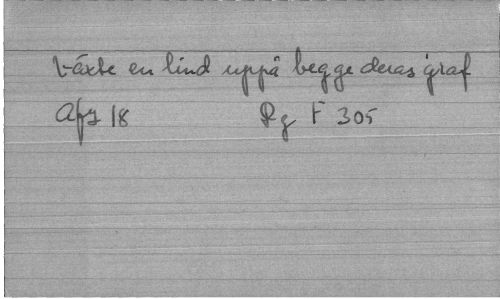 Växte en lind uppå begge deras graf
Afs 18 Rg F 305